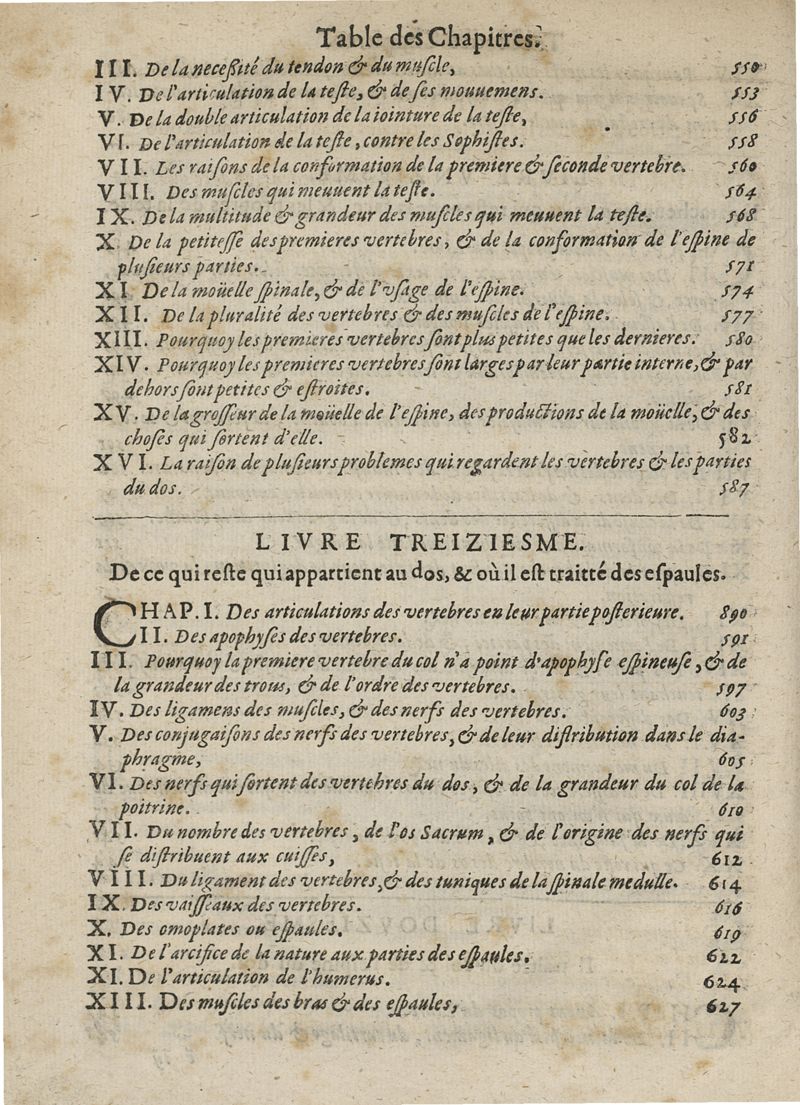 Table des Chapitres.
III. De la neceſſité du tendon & du muſcle, 550
IV. De l'articulation de la teſte, & de ſes mouuemens. 553
V. De la double articulation de la iointure de la teſte, 556
VI. De l'articulation de la teſte, contre les Sophiſtes. 558
VII. Les raiſons de la conformation de la premiere & ſeconde vertebre. 560
VIII. Des muſcles qui meuuent la teſte. 564
IX. De la multitude & grandeur des muſcles qui meuuent la teſte. 568
X De la petiteſſe des premieres vertebres, & de la conformation de l'eſpine de
pluſieurs parties. 571
XI De la moüelle ſpinale, & de l'vſage de l'eſpine. 574
XII. De la pluralité des vertebres & des muſcles de l'eſpine. 577
XIII. Pourquoy les premieres vertebres ſont plus petites que les dernieres. 580
XIV. Pourquoy les premieres vertebres ſont larges par leur partie interne, & par
dehors ſont petites & eſtroites. 581
XV. De la groſſeur de la moüelle de l'eſpine, des productions de la moüelle, & des
choſes qui ſortent d'elle. 582
XVI. La raiſon de pluſieurs problemes qui regardent les vertebres & les parties
du dos. 587
LIVRE TREIZIESME.
De ce qui reſte qui appartient au dos, & où il eſt traitté des eſpaules.
CHAP. I. Des articulations des vertebres en leur partie poſterieure. 890
II. Des apophyſes des vertebres. 591
III. Pourquoy la premiere vertebre du col n'a point d'apophyſe eſpineuſe, & de
la grandeur des trous, & de l'ordre des vertebres. 597
IV. Des ligamens des muſcles, & des nerfs des vertebres. 603
V. Des conjugaiſons des nerfs des vertebres, & de leur diſtribution dans le dia-
phragme, 605
VI. Des nerfs qui ſortent des vertebres du dos, & de la grandeur du col de la
poitrine. 610
VII. Du nombre des vertebres, de l'os Sacrum, & de l'origine des nerfs qui
ſe diſtribuent aux cuiſſes, 612
VIII. Du ligament des vertebres, & des tuniques de la ſpinale medulle. 614
IX. Des vaiſſeaux des vertebres. 616
X. Des omoplates ou eſpaules. 619
XI. De l'arcifice de la nature aux parties des eſpaules. 622
XI. De l'articulation de l'humerus. 624
XIII. Des muſcles des bras & des eſpaules, 627